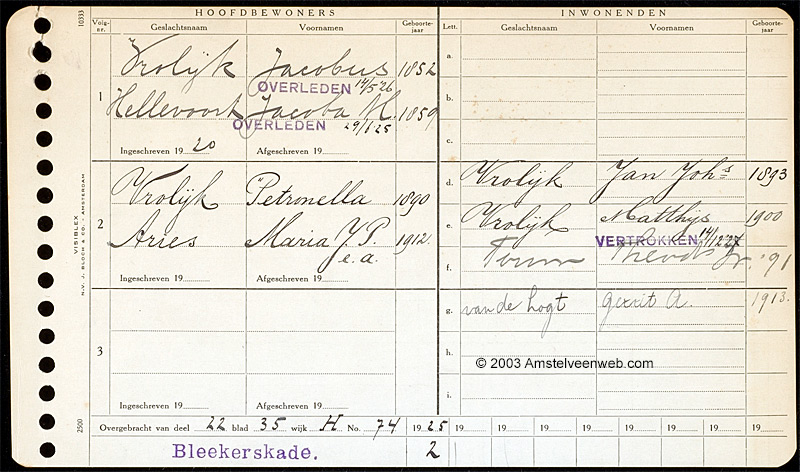 HOOFDBEWONERS
INWONENDEN
10333
Volg-nr.
Geslachtsnaam
Voornamen
Geboorte-jaar
Lett.
Geslachtsnaam
Voornamen
Geboorte-jaar
1
Vrolijk Jacobus 1852
OVERLEDEN 14/5 26
Hellevoort Jacoba M. 1859
OVERLEDEN 29/1 25
Ingeschreven 1920 Afgeschreven 19
a.
b.
c.
2
Vrolijk Petronella 1890
Aries Maria J. P. 1912.
e.a.
Ingeschreven 19 Afgeschreven 19
d. Vrolijk Jan Johs 1893
e. Vrolijk Matthijs 1900
VERTROKKEN 14/12 27
f. '91
3
Ingeschreven 19 Afgeschreven 19
g. van de hogt gerrit A. 1913.
h.
i.
© 2003 Amstelveenweb.com
VISIBLEX
N.V. J. BLOCH & CO. AMSTERDAM
2500
Overgebracht van deel 22 blad 35 wijk H No. 74 1925 19 19 19 19 19 19 19 19 19 19 19
Bleekerskade. 2